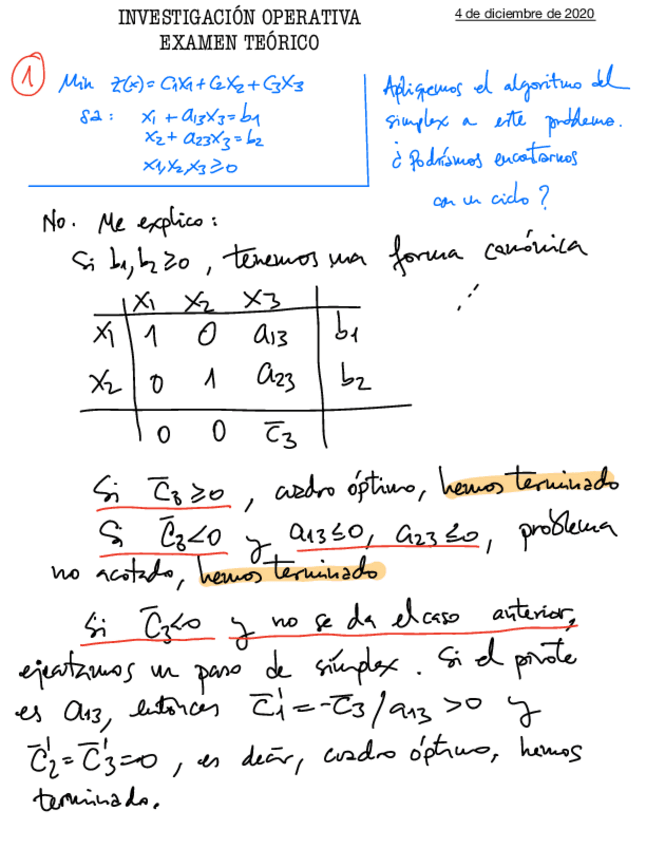 INVESTIGACIÓN OPERATIVA
4 de diciembre de 2020
EXAMEN TEÓRICO
1
Min Z(x) = C1X1 + C2X2 + C3X3
sa: x1 + a13x3 = b1
x2 + a23x3 = b2
x1, x2, x3 ≥ 0
Apliquemos el algoritmo del
simplex a este problema.
¿Podríamos encontrarnos
con un ciclo?
No. Me explico:
Si b1, b2 ≥ 0, tenemos una forma canónica
x1 x2 x3
x1 1 0 a13 b1
x2 0 1 a23 b2
0 0 c̄3
Si c̄3 ≥ 0, cuadro óptimo, hemos terminado
Si c̄3 < 0 y a13 ≤ 0, a23 ≤ 0, problema
no acotado, hemos terminado
Si c̄3 < 0 y no se da el caso anterior,
ejecutamos un paso de símplex. Si el pivote
es a13, entonces c̄1' = -c̄3/a13 > 0 y
c̄2' = c̄3' = 0, es decir, cuadro óptimo, hemos
terminado.